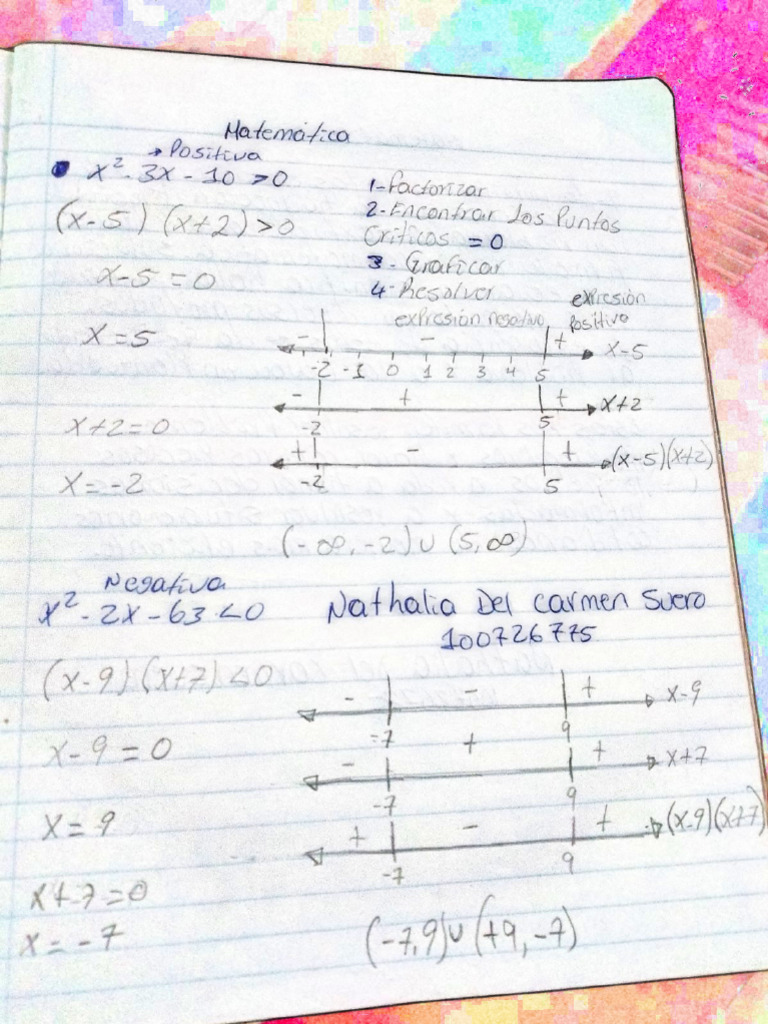 Matemática
→ Positiva
• x² - 3x - 10 > 0
(x-5) (x+2) > 0
x-5 = 0
x = 5
x+2 = 0
x = -2
1- Factorizar
2- Encontrar Los Puntos
Críticos = 0
3 - Graficar
4- Resolver
expresión negativo
expresión
Positivo
- - + x-5
-2 -1 0 1 2 3 4 5
- + + x+2
-2 5
+ - + (x-5)(x+2)
-2 5
(-∞, -2) ∪ (5, ∞)
Negativa
x² - 2x - 63 < 0
Nathalia Del carmen Suero
100726775
(x-9) (x+7) < 0
x - 9 = 0
x = 9
x+7 = 0
x = -7
- - + x-9
-7 9
- + + x+7
-7 9
+ - + (x-9)(x+7)
-7 9
(-7, 9) ∪ (+9, -7)